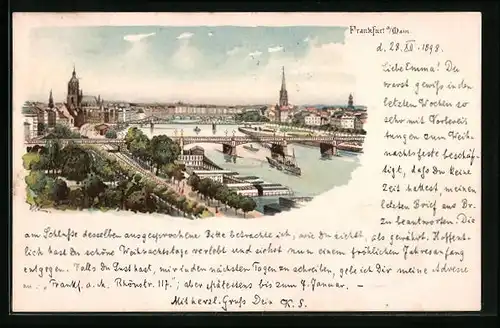 Frankfurt a/Main
d. 28. XII. 1898.
Liebe Emma! Du
warst gewiß in den
letzten Wochen so
sehr mit Vorberei-
tungen zum Weih-
nachtsfeste beschäf-
tigt, daß Du keine
Zeit hattest, meinen
letzten Brief aus Br.
zu beantworten. Die
am Schluße desselben ausgesprochene Bitte betrachte ich, wie Du siehst, als gewährt. Hoffent-
lich hast Du schöne Weihnachtstage verlebt und siehst nun einem fröhlichen Jahresanfang
entgegen. Falls Du Lust hast, mir in den nächsten Tagen zu schreiben, gebe ich Dir meine Adresse
an: „Frankf. a. M. Rhönstr. 117."; aber spätestens bis zum 7. Januar. –
Mit herzl. Gruß Dein K. S.